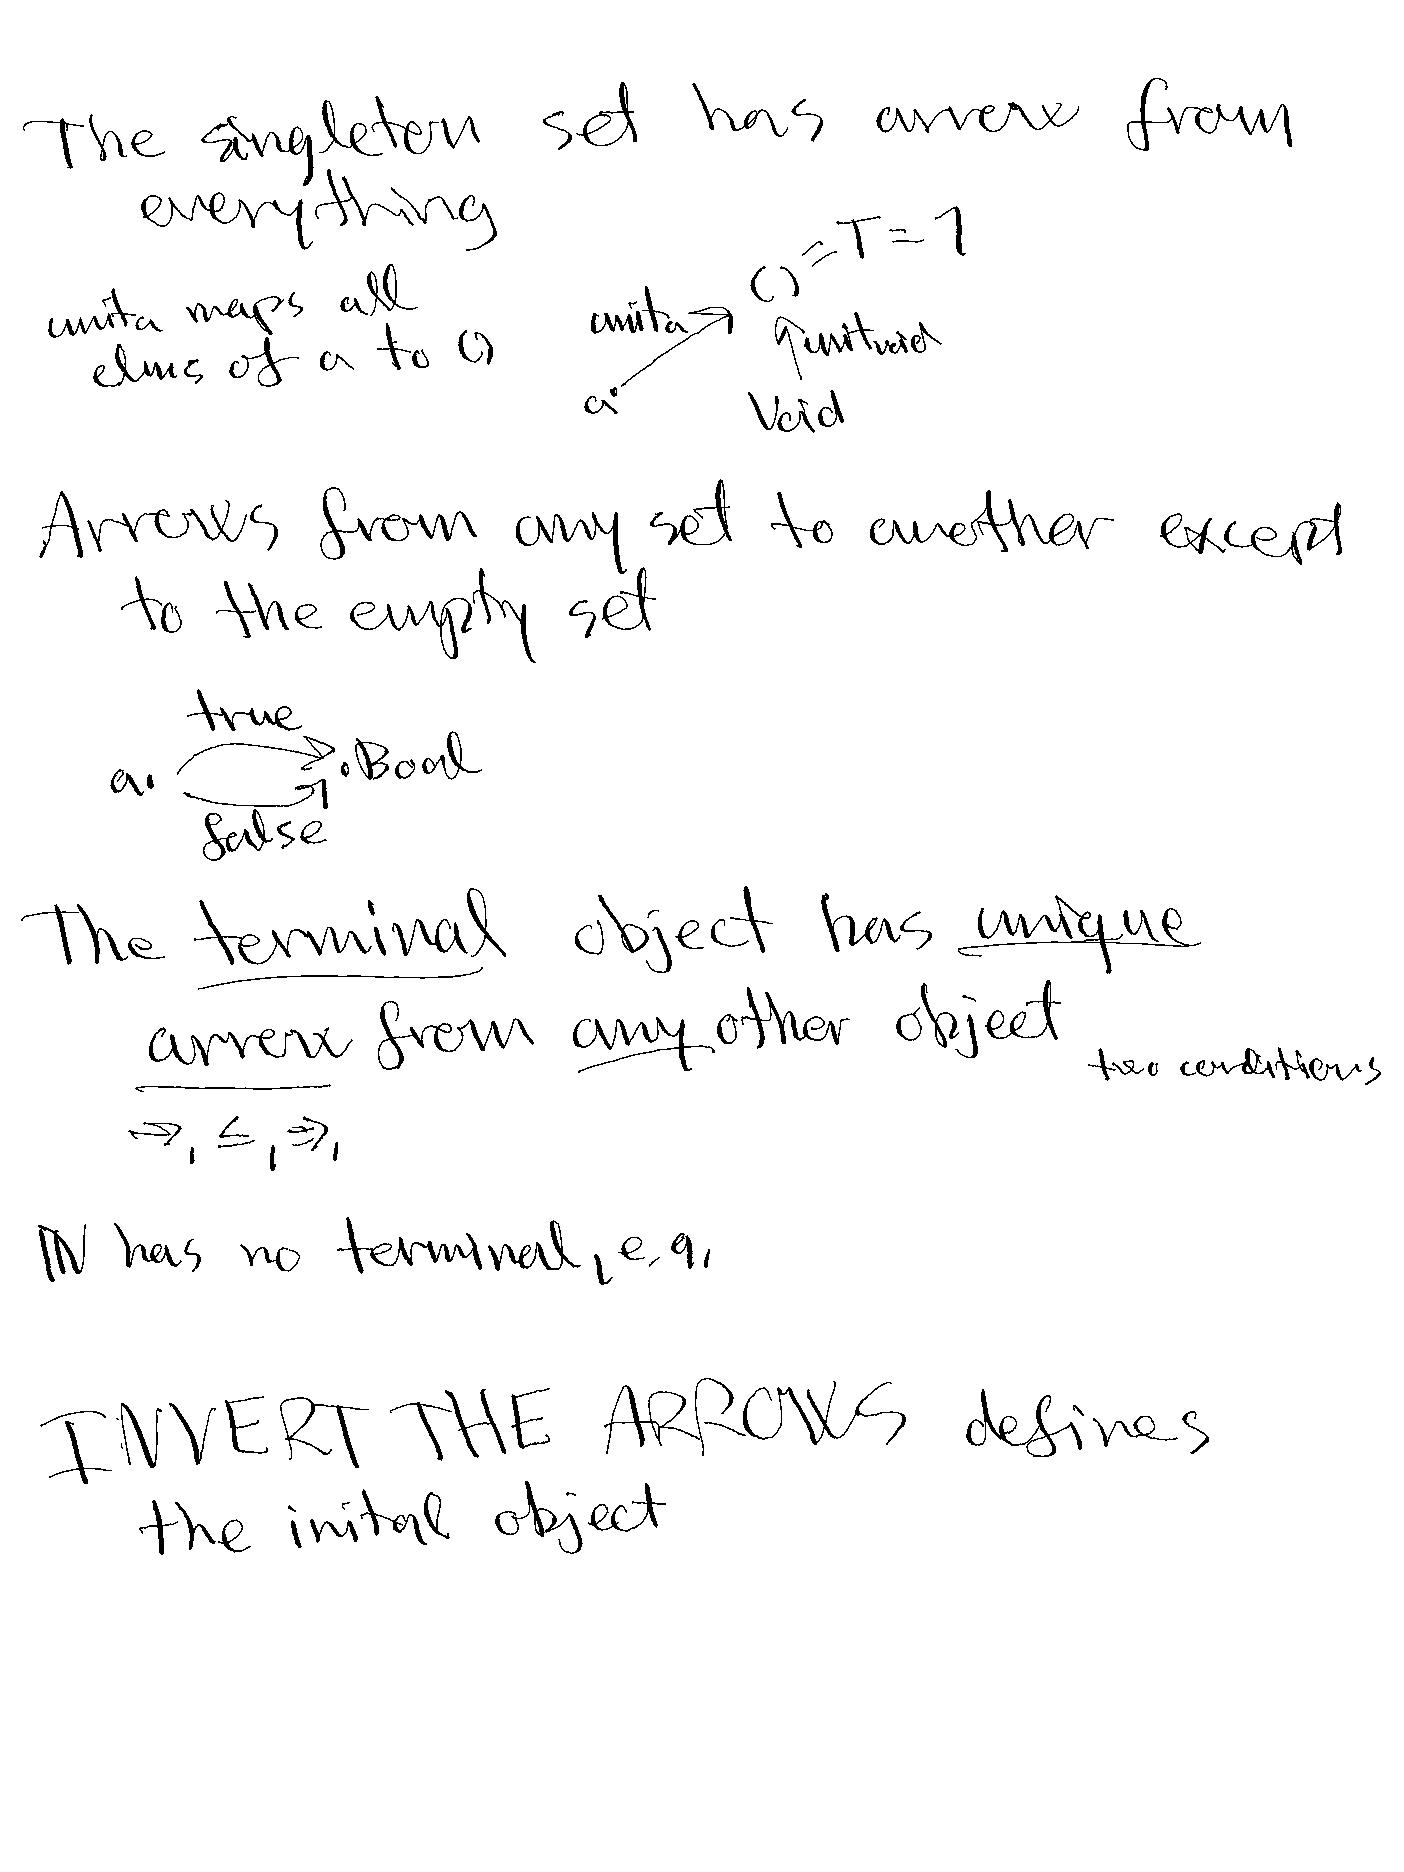 The singleton set has arrow from
everything
() = T = 1
unita maps all
elms of a to ()
unita
unitvoid
a.
Void
Arrows from any set to another except
to the empty set
true
a. .Bool
false
The terminal object has unique
arrow from any other object
two conditions
→, ≤, ⇒,
ℕ has no terminal, e.g.
INVERT THE ARROWS defines
the inital object